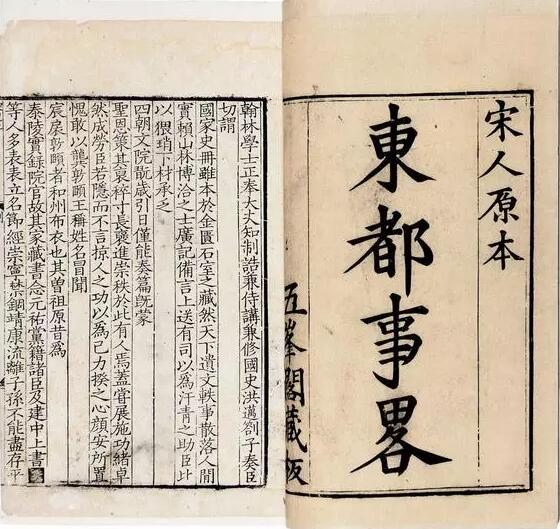 宋人原本
東都事畧
五峯閣藏板
翰林學士正奉大夫知制誥兼侍講兼修國史洪邁劄子奏臣
切謂
國家史冊雖本於金匱石室之藏然天下遺文軼事散落人間
實賴山林博洽之士廣記備言上送有司以為汗青之助臣比
以猥瑣下材承乏
四朝文院翫歳引日僅能奏篇旣蒙
聖恩策其衰稡寸長襃進崇秩於此有人焉蓋嘗展施功緒卓
然成勞臣若隱而不言掠人之功以為己力揆之心顔安所置
愧敢以龔敦頤王稱姓名冒聞
宸扆敦頤者和州布衣也其曽祖原昔為
泰陵實錄院官故其家藏書念元祐黨籍諸臣及建中上書
等人多表表立名節經崇寧禁錮靖康流離子孫不能盡存平